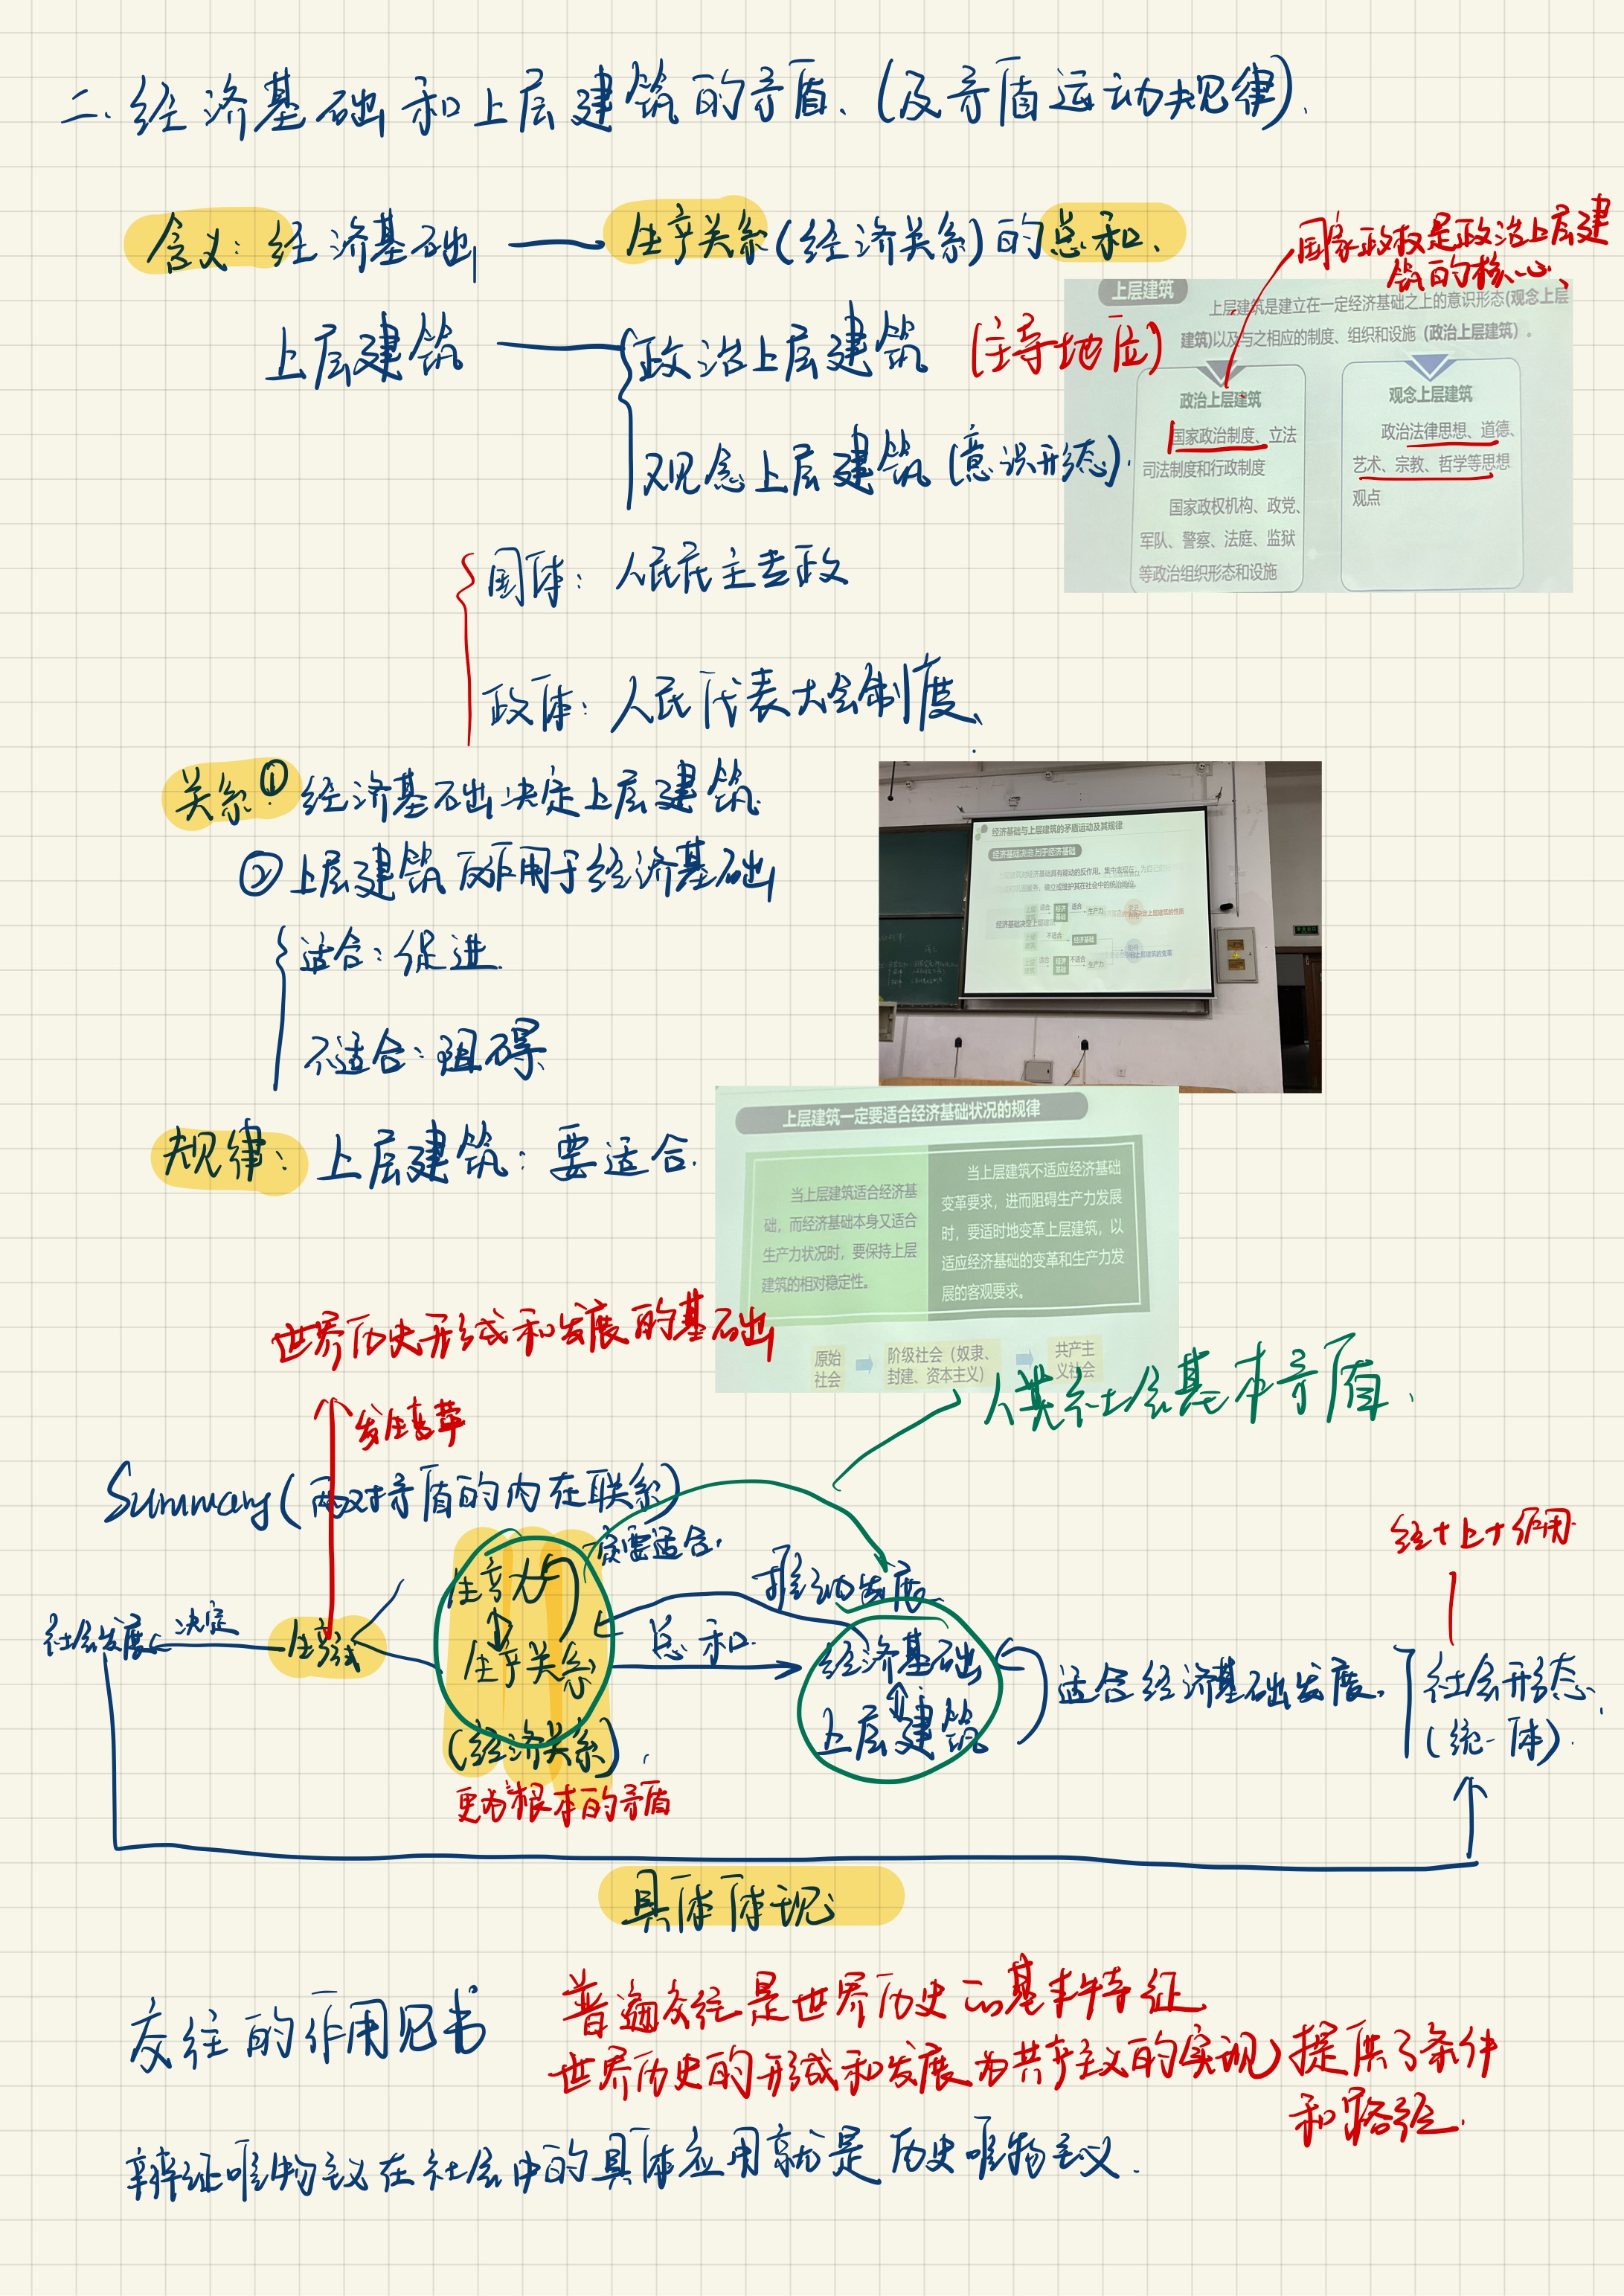 二.经济基础和上层建筑的矛盾.(及矛盾运动规律).
含义:经济基础——生产关系(经济关系)的总和.
国家政权是政治上层建
筑的核心、
上层建筑
政治上层建筑 (主导地位)
观念上层建筑(意识形态).
上层建筑
上层建筑是建立在一定经济基础之上的意识形态(观念上层
建筑)以及与之相应的制度、组织和设施(政治上层建筑)。
政治上层建筑
国家政治制度、立法
司法制度和行政制度
国家政权机构、政党、
军队、警察、法庭、监狱
等政治组织形态和设施
观念上层建筑
政治法律思想、道德、
艺术、宗教、哲学等思想
观点
国体:人民民主专政
政体:人民代表大会制度、
关系:①经济基础决定上层建筑.
②上层建筑反作用于经济基础
适合:促进.
不适合:阻碍
经济基础与上层建筑的矛盾运动及其规律
规律:上层建筑:要适合.
上层建筑一定要适合经济基础状况的规律
当上层建筑适合经济基
础,而经济基础本身又适合
生产力状况时,要保持上层
建筑的相对稳定性。
当上层建筑不适应经济基础
变革要求,进而阻碍生产力发展
时,要适时地变革上层建筑,以
适应经济基础的变革和生产力发
展的客观要求。
原始
社会
阶级社会(奴隶、
封建、资本主义)
共产主
义社会
世界历史形成和发展的基础
发生变革
人类社会基本矛盾.
Summary(两对矛盾的内在联系)
需要适合.
推动发展
经+上+作用
社会发展
决定
生产方式
生产力
生产关系
(经济关系).
更为根本的矛盾
总和
经济基础
上层建筑
适合经济基础发展.
社会形态.
(统一体).
具体体现
交往的作用见书
普遍交往是世界历史的基本特征
世界历史的形成和发展为共产主义的实现提供了条件
和路径.
辩证唯物主义在社会中的具体应用就是历史唯物主义.